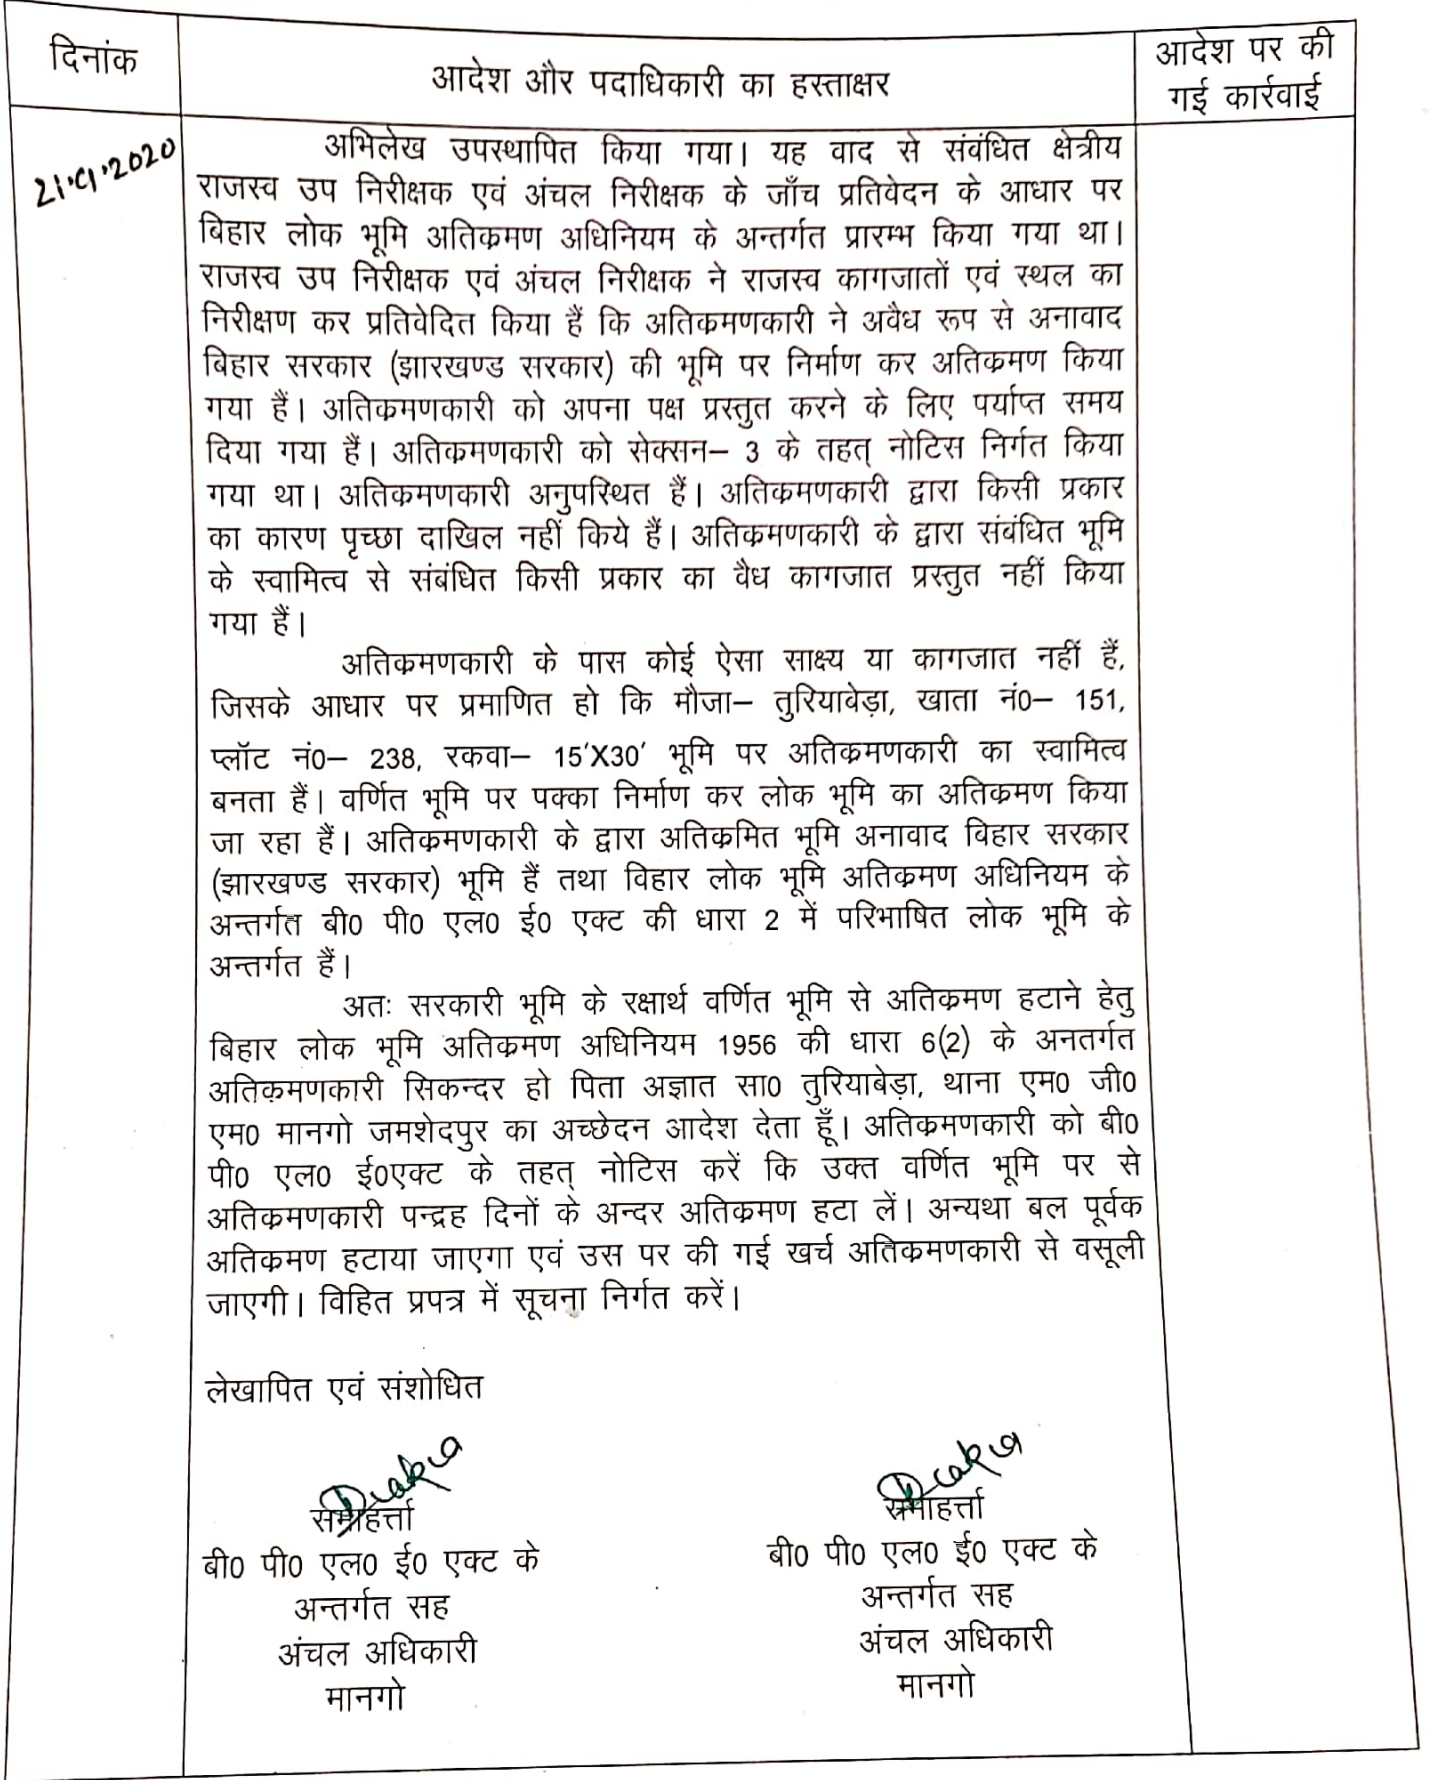 दिनांक
आदेश और पदाधिकारी का हस्ताक्षर
आदेश पर की
गई कार्रवाई
21.9.2020
अभिलेख उपस्थापित किया गया। यह वाद से संबंधित क्षेत्रीय
राजस्व उप निरीक्षक एवं अंचल निरीक्षक के जाँच प्रतिवेदन के आधार पर
बिहार लोक भूमि अतिक्रमण अधिनियम के अन्तर्गत प्रारम्भ किया गया था।
राजस्व उप निरीक्षक एवं अंचल निरीक्षक ने राजस्व कागजातों एवं स्थल का
निरीक्षण कर प्रतिवेदित किया हैं कि अतिक्रमणकारी ने अवैध रूप से अनावाद
बिहार सरकार (झारखण्ड सरकार) की भूमि पर निर्माण कर अतिक्रमण किया
गया हैं। अतिक्रमणकारी को अपना पक्ष प्रस्तुत करने के लिए पर्याप्त समय
दिया गया हैं। अतिक्रमणकारी को सेक्सन– 3 के तहत् नोटिस निर्गत किया
गया था। अतिक्रमणकारी अनुपस्थित हैं। अतिक्रमणकारी द्वारा किसी प्रकार
का कारण पृच्छा दाखिल नहीं किये हैं। अतिक्रमणकारी के द्वारा संबंधित भूमि
के स्वामित्व से संबंधित किसी प्रकार का वैध कागजात प्रस्तुत नहीं किया
गया हैं।
अतिक्रमणकारी के पास कोई ऐसा साक्ष्य या कागजात नहीं हैं,
जिसके आधार पर प्रमाणित हो कि मौजा– तुरियाबेड़ा, खाता नं0– 151,
प्लॉट नं0– 238, रकवा– 15'X30' भूमि पर अतिक्रमणकारी का स्वामित्व
बनता हैं। वर्णित भूमि पर पक्का निर्माण कर लोक भूमि का अतिक्रमण किया
जा रहा हैं। अतिक्रमणकारी के द्वारा अतिक्रमित भूमि अनावाद विहार सरकार
(झारखण्ड सरकार) भूमि हैं तथा विहार लोक भूमि अतिक्रमण अधिनियम के
अन्तर्गत बी0 पी0 एल0 ई0 एक्ट की धारा 2 में परिभाषित लोक भूमि के
अन्तर्गत हैं।
अतः सरकारी भूमि के रक्षार्थ वर्णित भूमि से अतिक्रमण हटाने हेतु
बिहार लोक भूमि अतिक्रमण अधिनियम 1956 की धारा 6(2) के अनतर्गत
अतिक्रमणकारी सिकन्दर हो पिता अज्ञात सा0 तुरियाबेड़ा, थाना एम0 जी0
एम0 मानगो जमशेदपुर का अच्छेदन आदेश देता हूँ। अतिक्रमणकारी को बी0
पी0 एल0 ई0एक्ट के तहत् नोटिस करें कि उक्त वर्णित भूमि पर से
अतिक्रमणकारी पन्द्रह दिनों के अन्दर अतिक्रमण हटा लें। अन्यथा बल पूर्वक
अतिक्रमण हटाया जाएगा एवं उस पर की गई खर्च अतिक्रमणकारी से वसूली
जाएगी। विहित प्रपत्र में सूचना निर्गत करें।
लेखापित एवं संशोधित
समाहर्त्ता
बी0 पी0 एल0 ई0 एक्ट के
अन्तर्गत सह
अंचल अधिकारी
मानगो
समाहर्त्ता
बी0 पी0 एल0 ई0 एक्ट के
अन्तर्गत सह
अंचल अधिकारी
मानगो